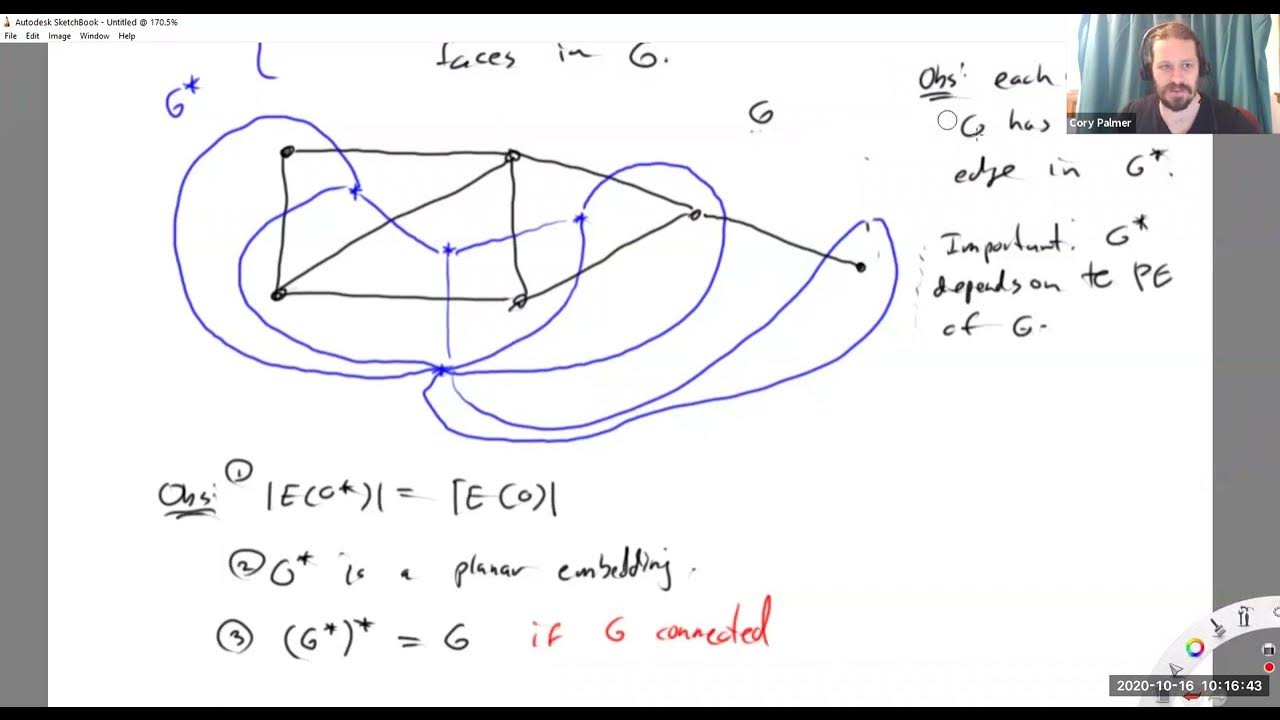 Autodesk SketchBook - Untitled @ 170.5%
File Edit Image Window Help
faces in G.
G*
G
Obs: each
G has
edge in G*.
Important: G*
depends on te PE
of G.
Cory Palmer
Obs: ① |E(G*)| = |E(G)|
② G* is a planar embedding.
③ (G*)* = G if G connected
2020-10-16 10:16:43